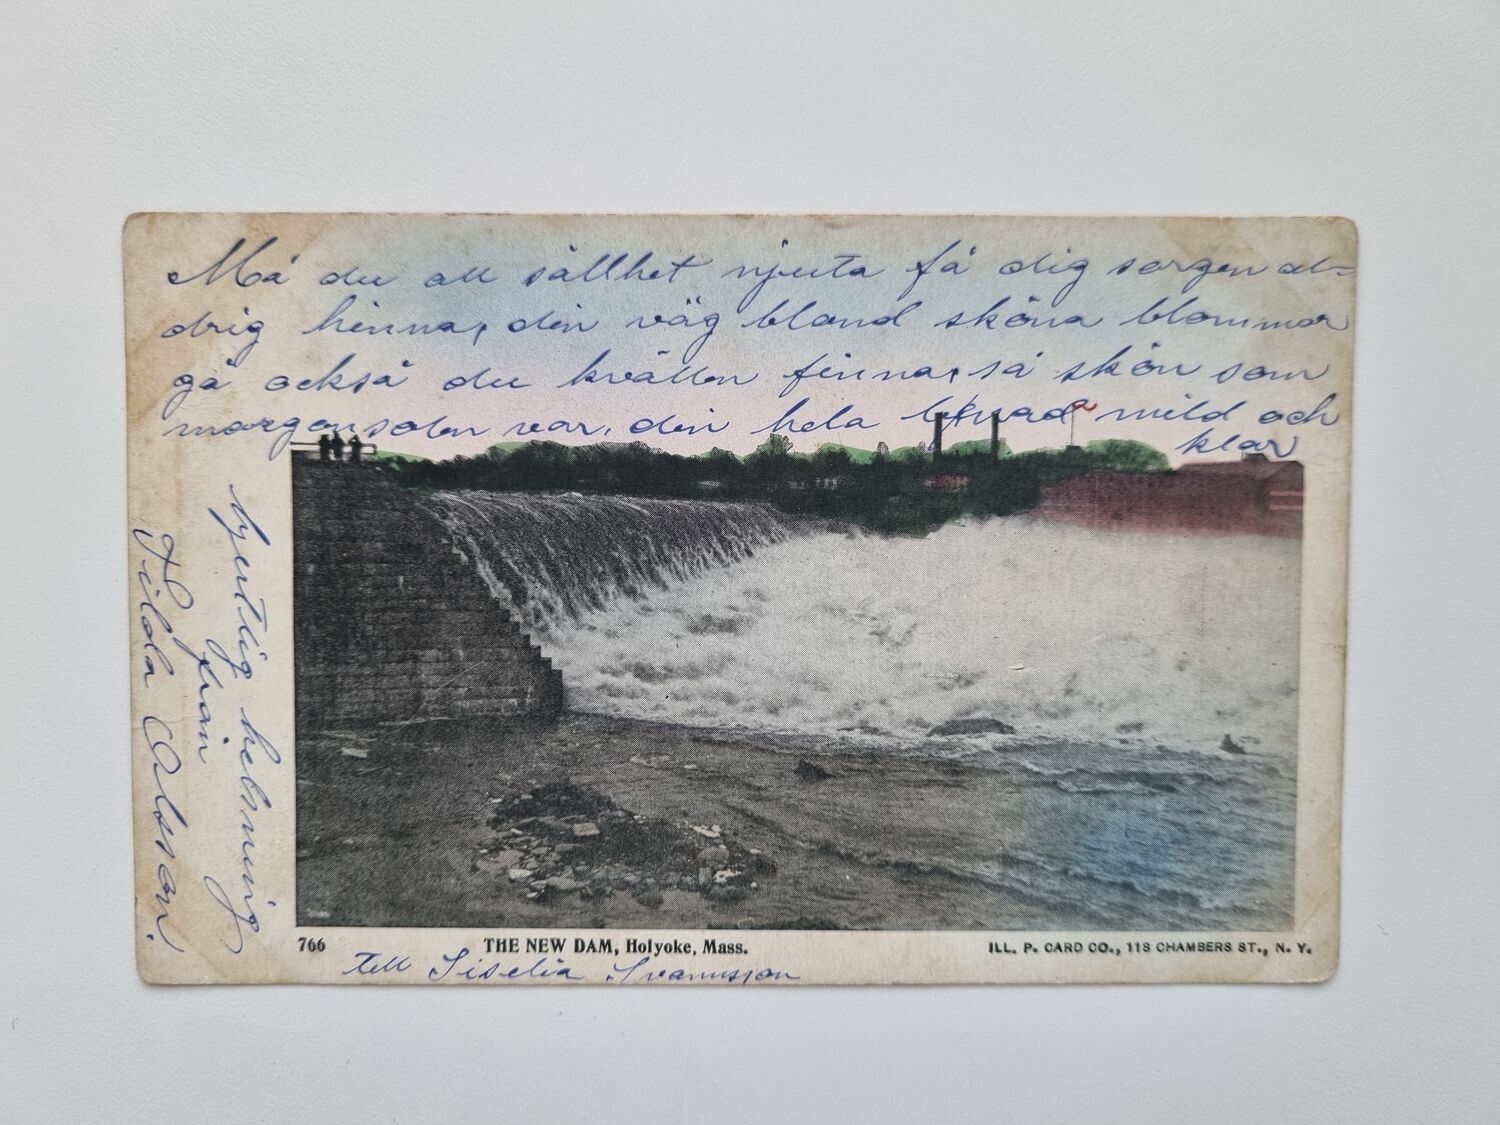 Må du all sällhet njuta få dig sorgen al-
drig hinna, din väg bland sköna blommor
gå också du kvällen finna, så skön som
morgonsolen var, din hela lefnad mild och
klar
hjertlig helsning
från
Hilda Olsson.
766
THE NEW DAM, Holyoke, Mass.
ILL. P. CARD CO., 118 CHAMBERS ST., N. Y.
till Siselia Svaensson